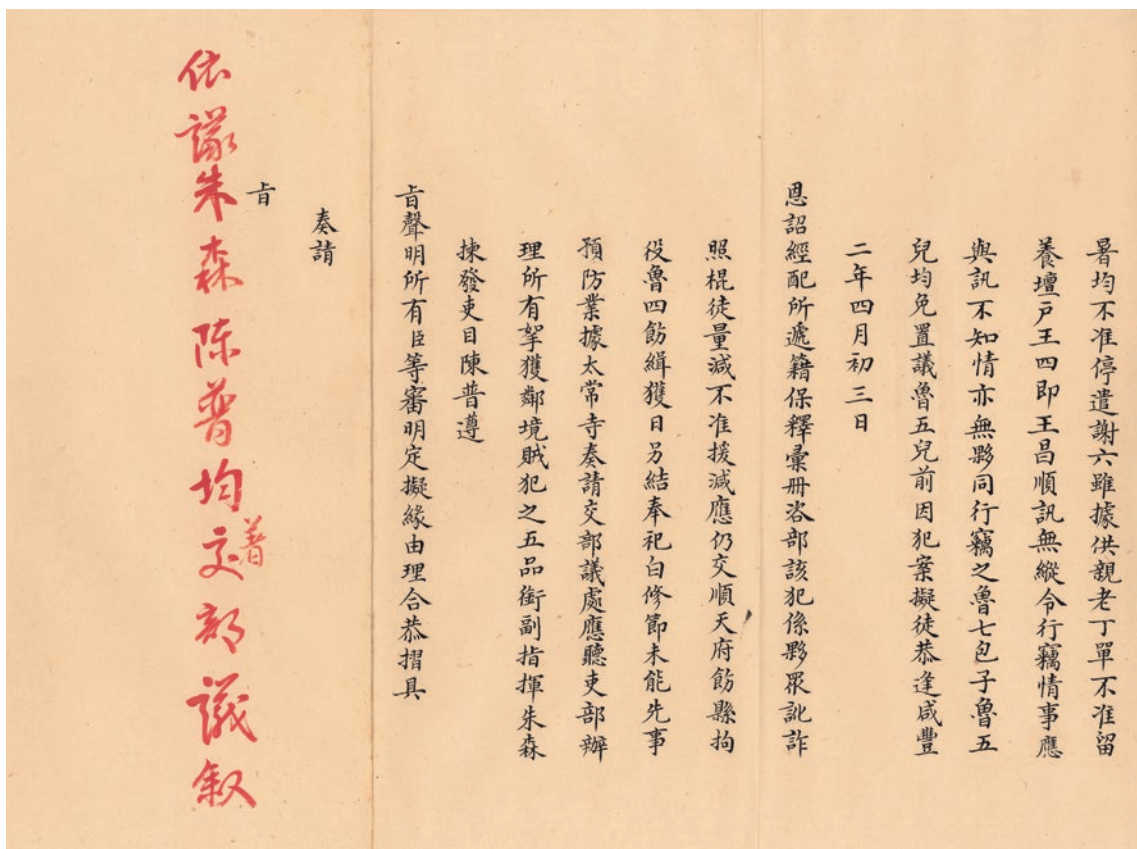 暑均不准停遣謝六雖據供親老丁單不准留
養壇戶王四即王昌順訊無縱令行竊情事應
與訊不知情亦無夥同行竊之魯七包子魯五
兒均免置議魯五兒前因犯案擬徒恭逢咸豐
二年四月初三日
恩詔經配所遞籍保釋彙冊咨部該犯係夥眾訛詐
照棍徒量減不准援減應仍交順天府飭縣拘
役魯四飭緝獲日另結奉祀白修節未能先事
預防業據太常寺奏請交部議處應聽吏部辦
理所有拏獲鄰境賊犯之五品銜副指揮朱森
揀發吏目陳普遵
旨聲明所有臣等審明定擬緣由理合恭摺具
奏請
旨
依議朱森陳普均着交部議叙